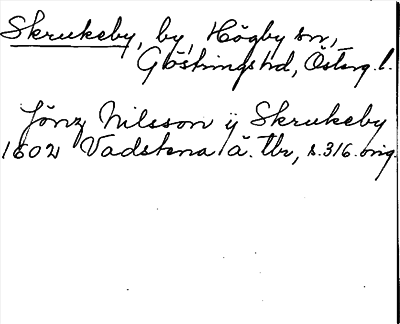 Skrukeby, by, Högby sn,
Göstrings hd, Österg. l.
Jönz Nilsson ij Skrukeby
1602 Vadstena ä. tbr, s. 316. orig.